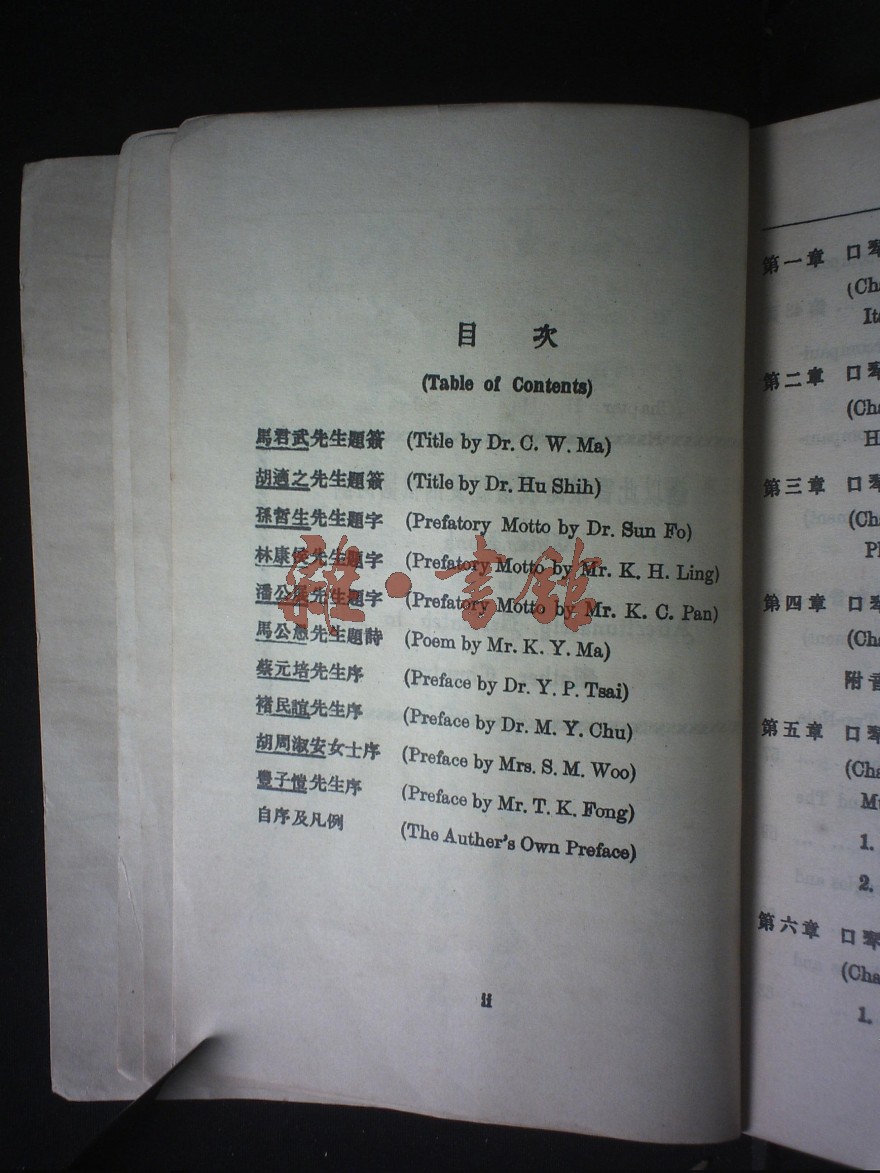 目 次
(Table of Contents)
馬君武先生題簽 (Title by Dr. C. W. Ma)
胡適之先生題簽 (Title by Dr. Hu Shih)
孫哲生先生題字 (Prefatory Motto by Dr. Sun Fo)
林康侯先生題字 (Prefatory Motto by Mr. K. H. Ling)
潘公展先生題字 (Prefatory Motto by Mr. K. C. Pan)
馬公愚先生題詩 (Poem by Mr. K. Y. Ma)
蔡元培先生序 (Preface by Dr. Y. P. Tsai)
褚民誼先生序 (Preface by Dr. M. Y. Chu)
胡周淑安女士序 (Preface by Mrs. S. M. Woo)
豐子愷先生序 (Preface by Mr. T. K. Fong)
自序及凡例 (The Auther's Own Preface)
ii
雜·書館
第一章 口琴
(Cha
Its
第二章 口琴
(Cha
H
第三章 口琴
(Cha
Pl
第四章 口琴
(Cha
附音
第五章 口琴
(Cha
Mu
1.
2.
第六章 口琴
(Cha
1.